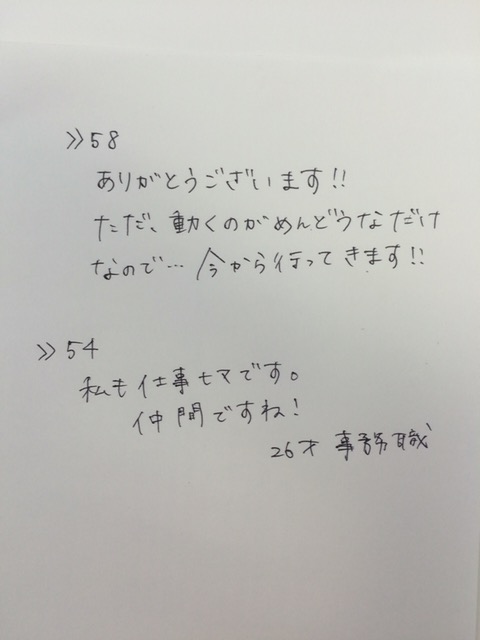 >>58
ありがとうございます!!
ただ、動くのがめんどうなだけ
なので…今から行ってきます!!
>>54
私も仕事ヒマです。
仲間ですね!
26才 事務職